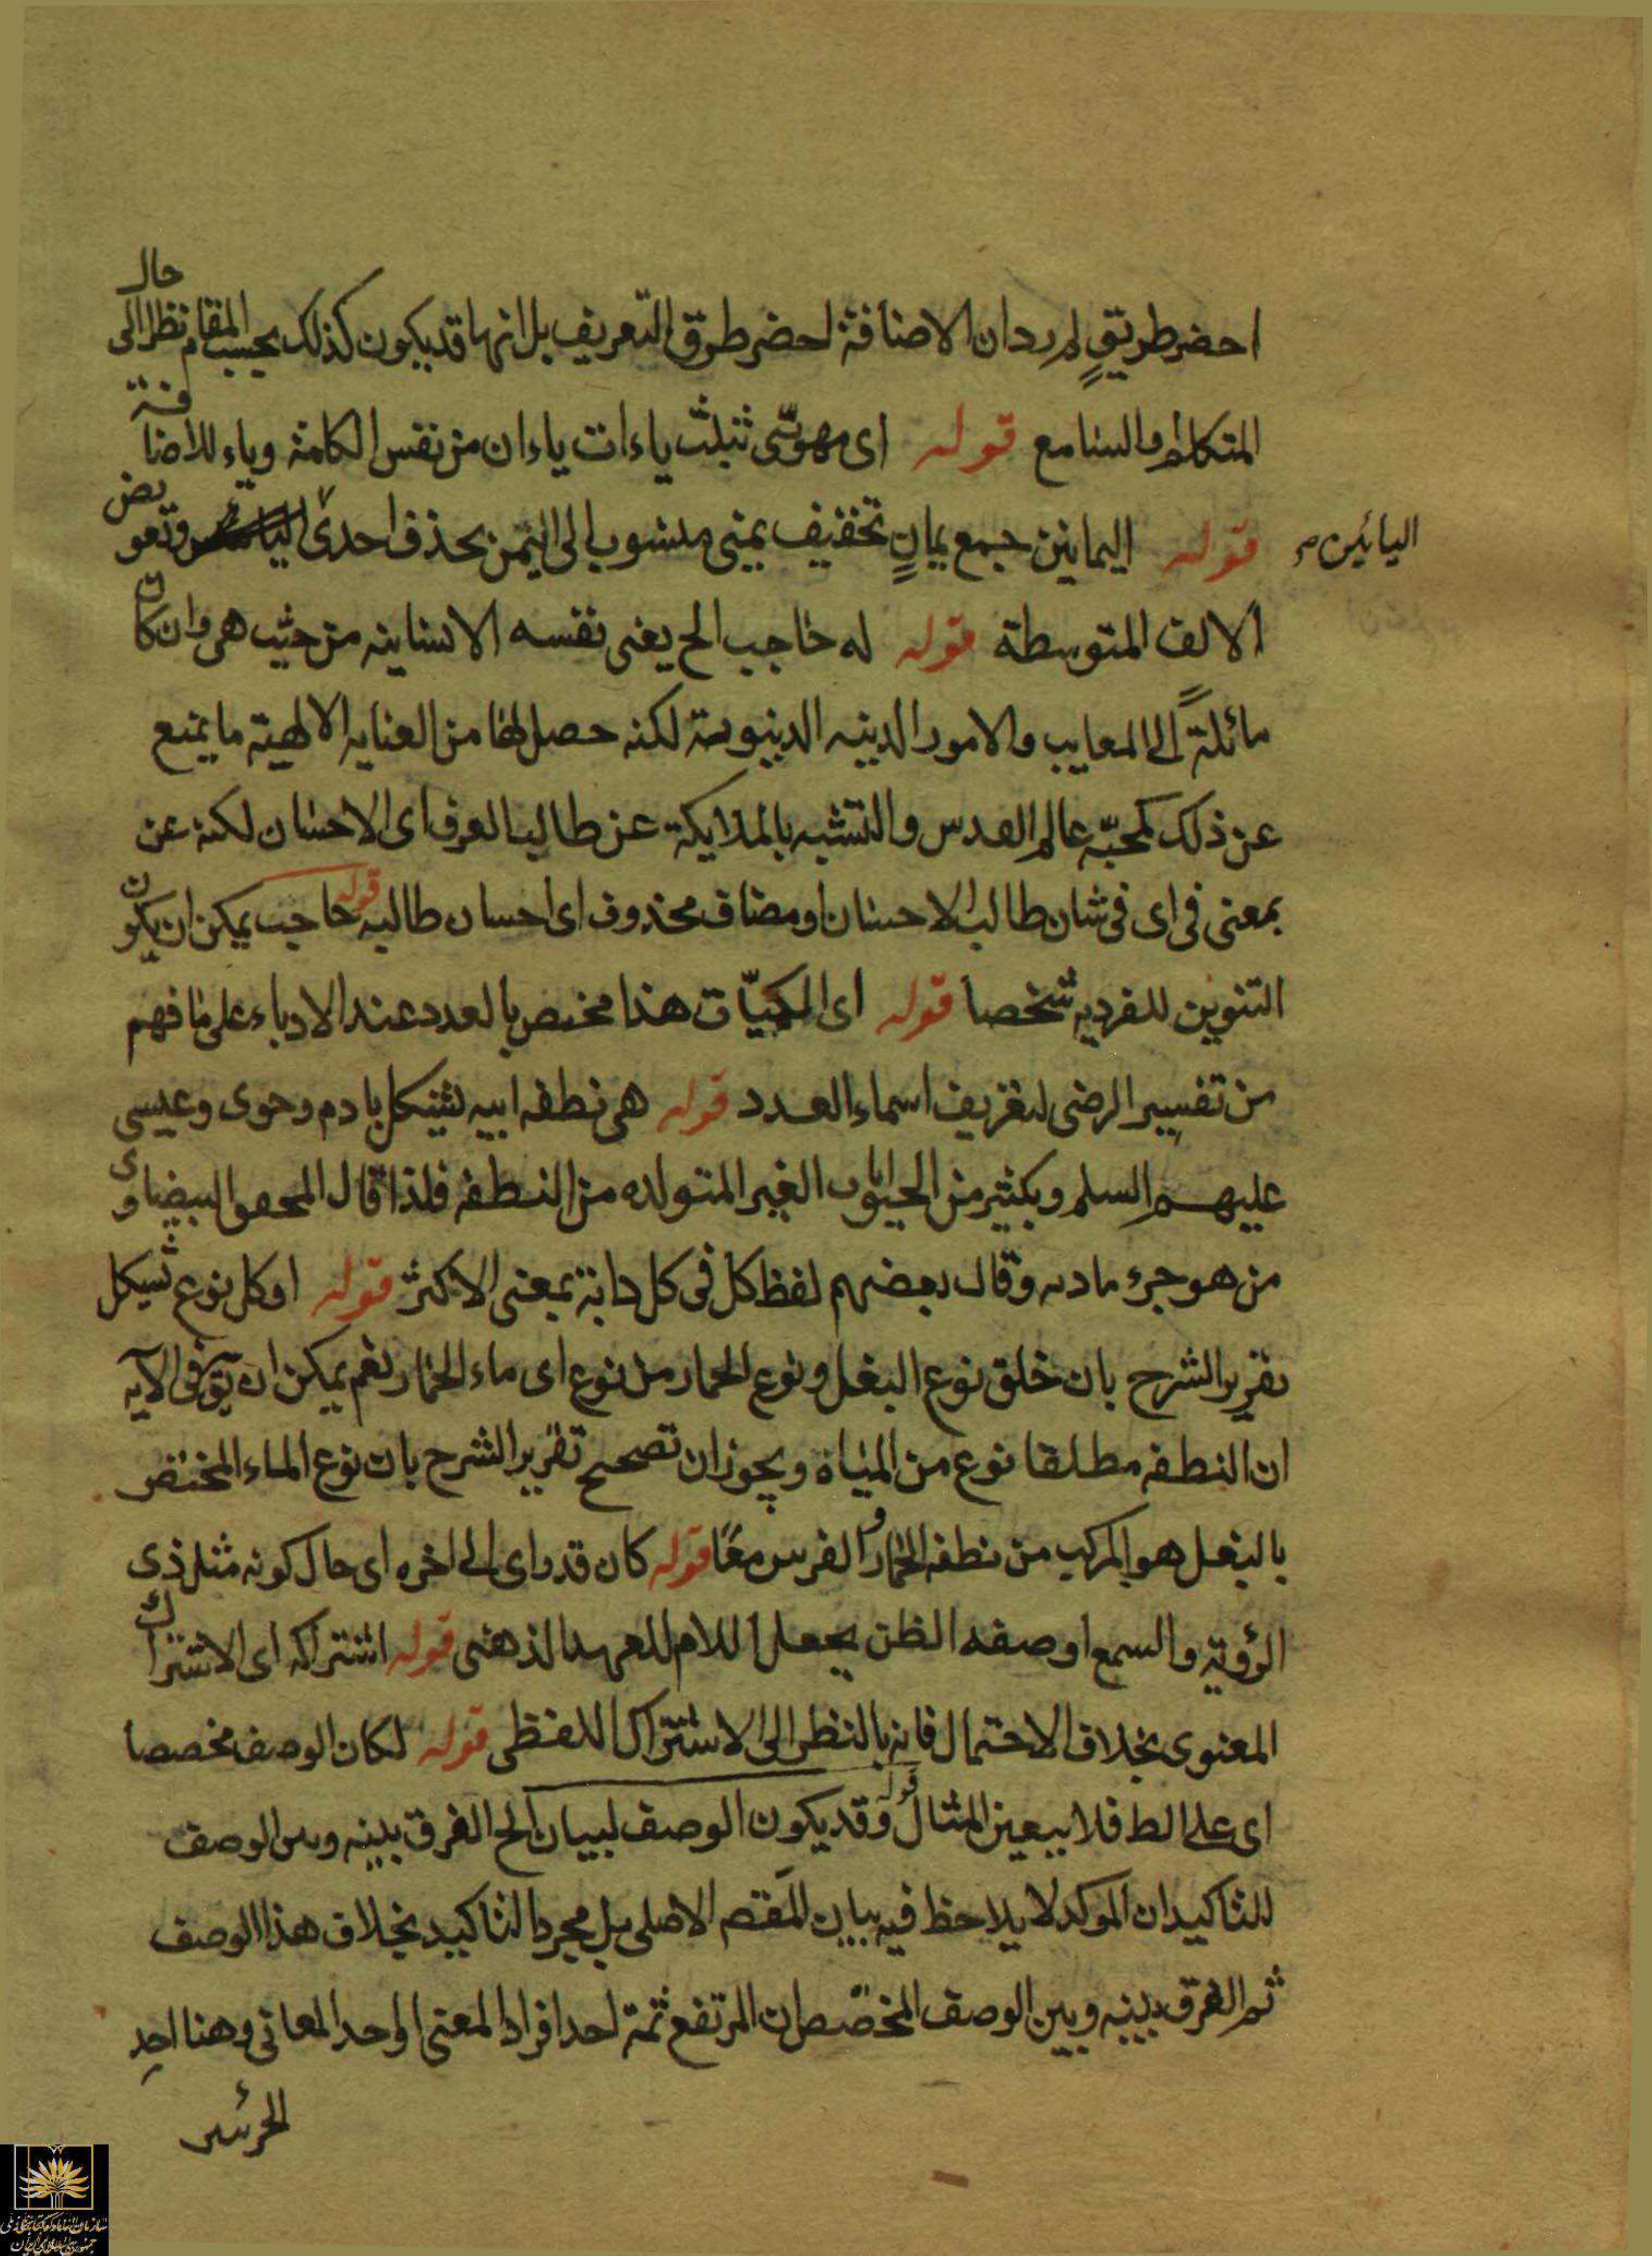 احضر طريقٍ لم يرد ان الاضافة احضر طرق التعريف بل انها قد يكون كذلك بحسب المقام نظرا الى حال
المتكلم والسامع قوله اى مهوىّ بثلث ياءات ياءان من نفس الكلمة وياء للاضافة
قوله اليمانين جمع يمانٍ تخفيف يمنى منسوب الى اليمن بحذف احدى اليائين وتعويض
الالف المتوسطة قوله له حاجب الخ يعنى نفسه الانسانيه من حيث هى وان كان
مائلةً الى المعايب والامور الدنيه الدنيوية لكنه حصل لها من العنايه الالهية ما يمنع
عن ذلك كمحبّه عالم القدس والتشبه بالملايكة عن طالب العرف اى الاحسان لكنه عن
بمعنى فى اى فى شان طالب الاحسان او مضاف محذوف اى احسان طالبه قوله حاجب يمكن ان يكون
التنوين للفرديه شخصا قوله اى الكميّات هذا مختص بالعدد عند الادباء على ما فهم
من تفسير الرضى لتعريف اسماء العدد قوله هى نطفه ابيه يشكل بادم وحوى وعيسى
عليهم السلم وبكثير من الحيوانات الغير المتولده من النطفه فلذا قال المحقق البيضاوى
من هو جزء مادته وقال بعضهم لفظ كل فى كل دابة بمعنى الاكثر قوله او كل نوع يشكل
تقرير الشرح بان خلق نوع البغل ونوع الحمار من نوع اى ماء الحمار نعم يمكن ان يق فى الآيه
ان النطفه مطلقا نوع من المياه ويجوز ان تصحح تقرير الشرح بان نوع الماء المختص
بالبغل هو المركب من نطفه الحمار والفرس معًا قوله كان قد راى الى اخره اى حال كونه مثل ذى
الرؤية والسمع او صفه الظن يجعل اللام للعهد الذهنى قوله اشتراكه اى الاشتراك
المعنوى بخلاف الاحتمال فانه بالنظر الى الاشتراك اللفظى قوله لكان الوصف مخصصا
اى على الظ فلا يتعين المثال قوله وقد يكون الوصف لبيان الخ الفرق بينه وبين الوصف
للتاكيد ان الموكد لا يلاحظ فيه بيان المقصم الاصلى بل مجرد التاكيد بخلاف هذا الوصف
ثم الفرق بينه وبين الوصف المخصّص ان المرتفع ثمة احد افراد المعنى الواحد المعانى وهنا احد